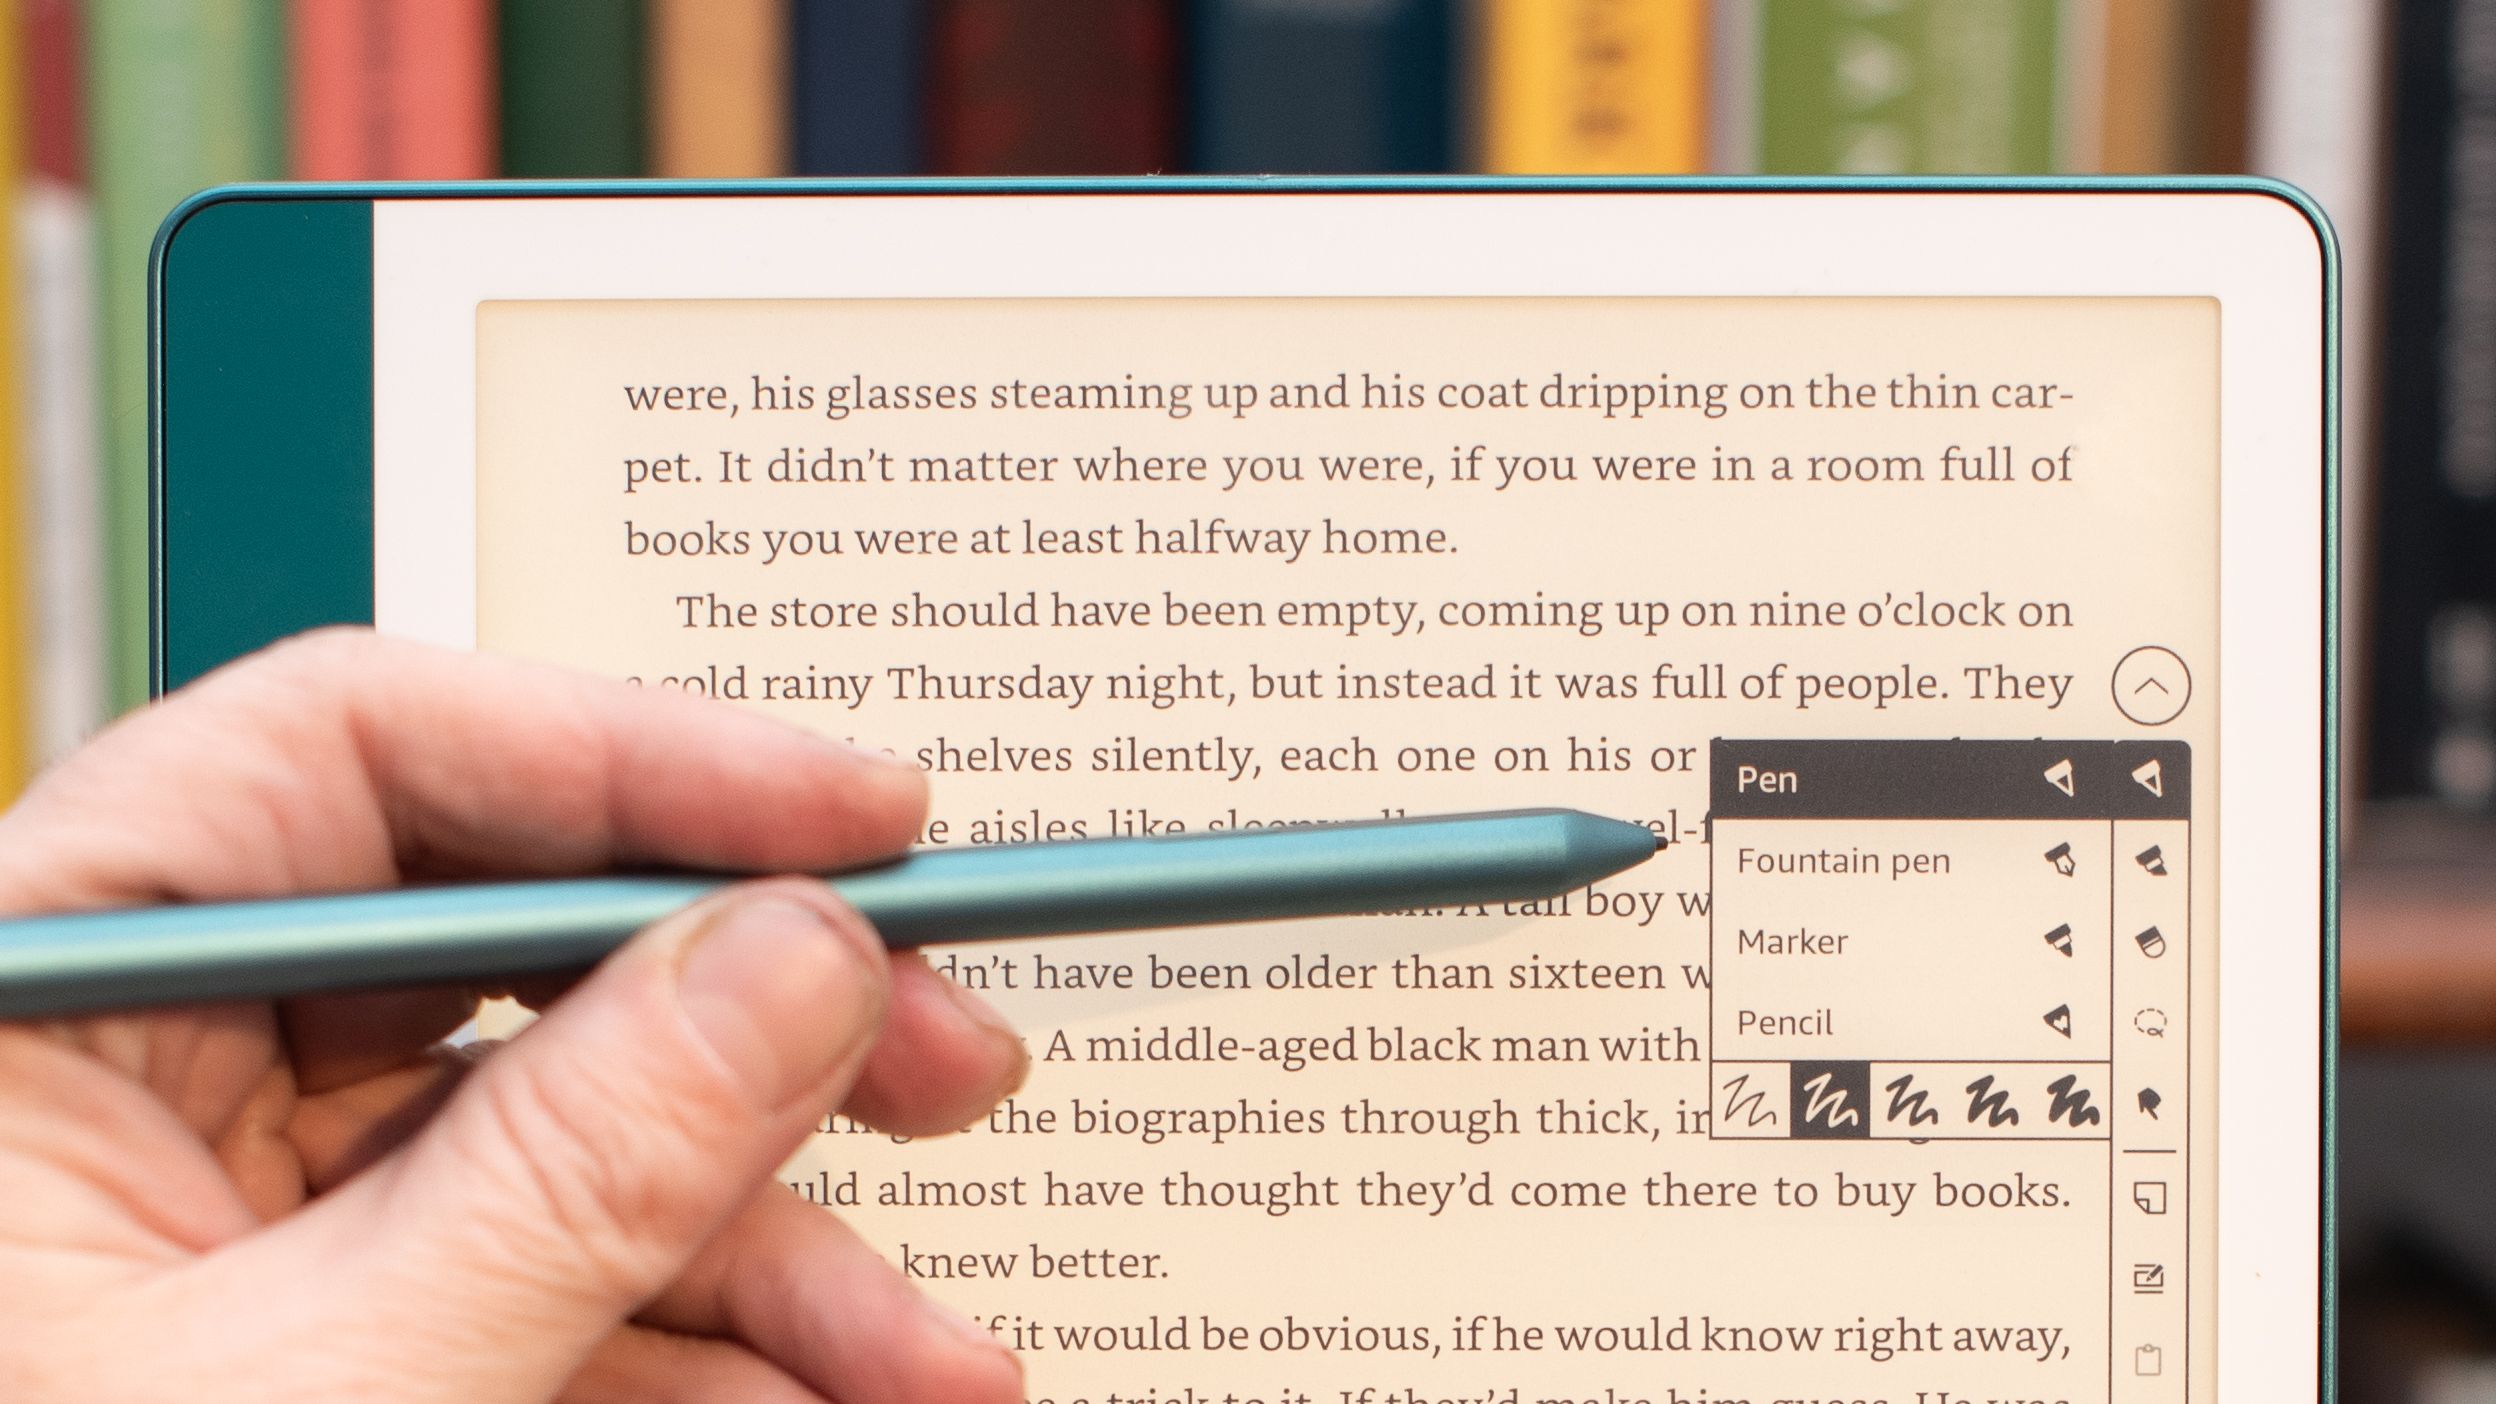 were, his glasses steaming up and his coat dripping on the thin car-
pet. It didn’t matter where you were, if you were in a room full of
books you were at least halfway home.
The store should have been empty, coming up on nine o’clock on
cold rainy Thursday night, but instead it was full of people. They
shelves silently, each one on his or
aisles like
boy
have been older than sixteen
A middle-aged black man with
the biographies through thick,
almost have thought they’d come there to buy books.
knew better.
if it would be obvious, if he would know right away,
a trick to it. If they’d make him guess. He was
Pen
Fountain pen
Marker
Pencil